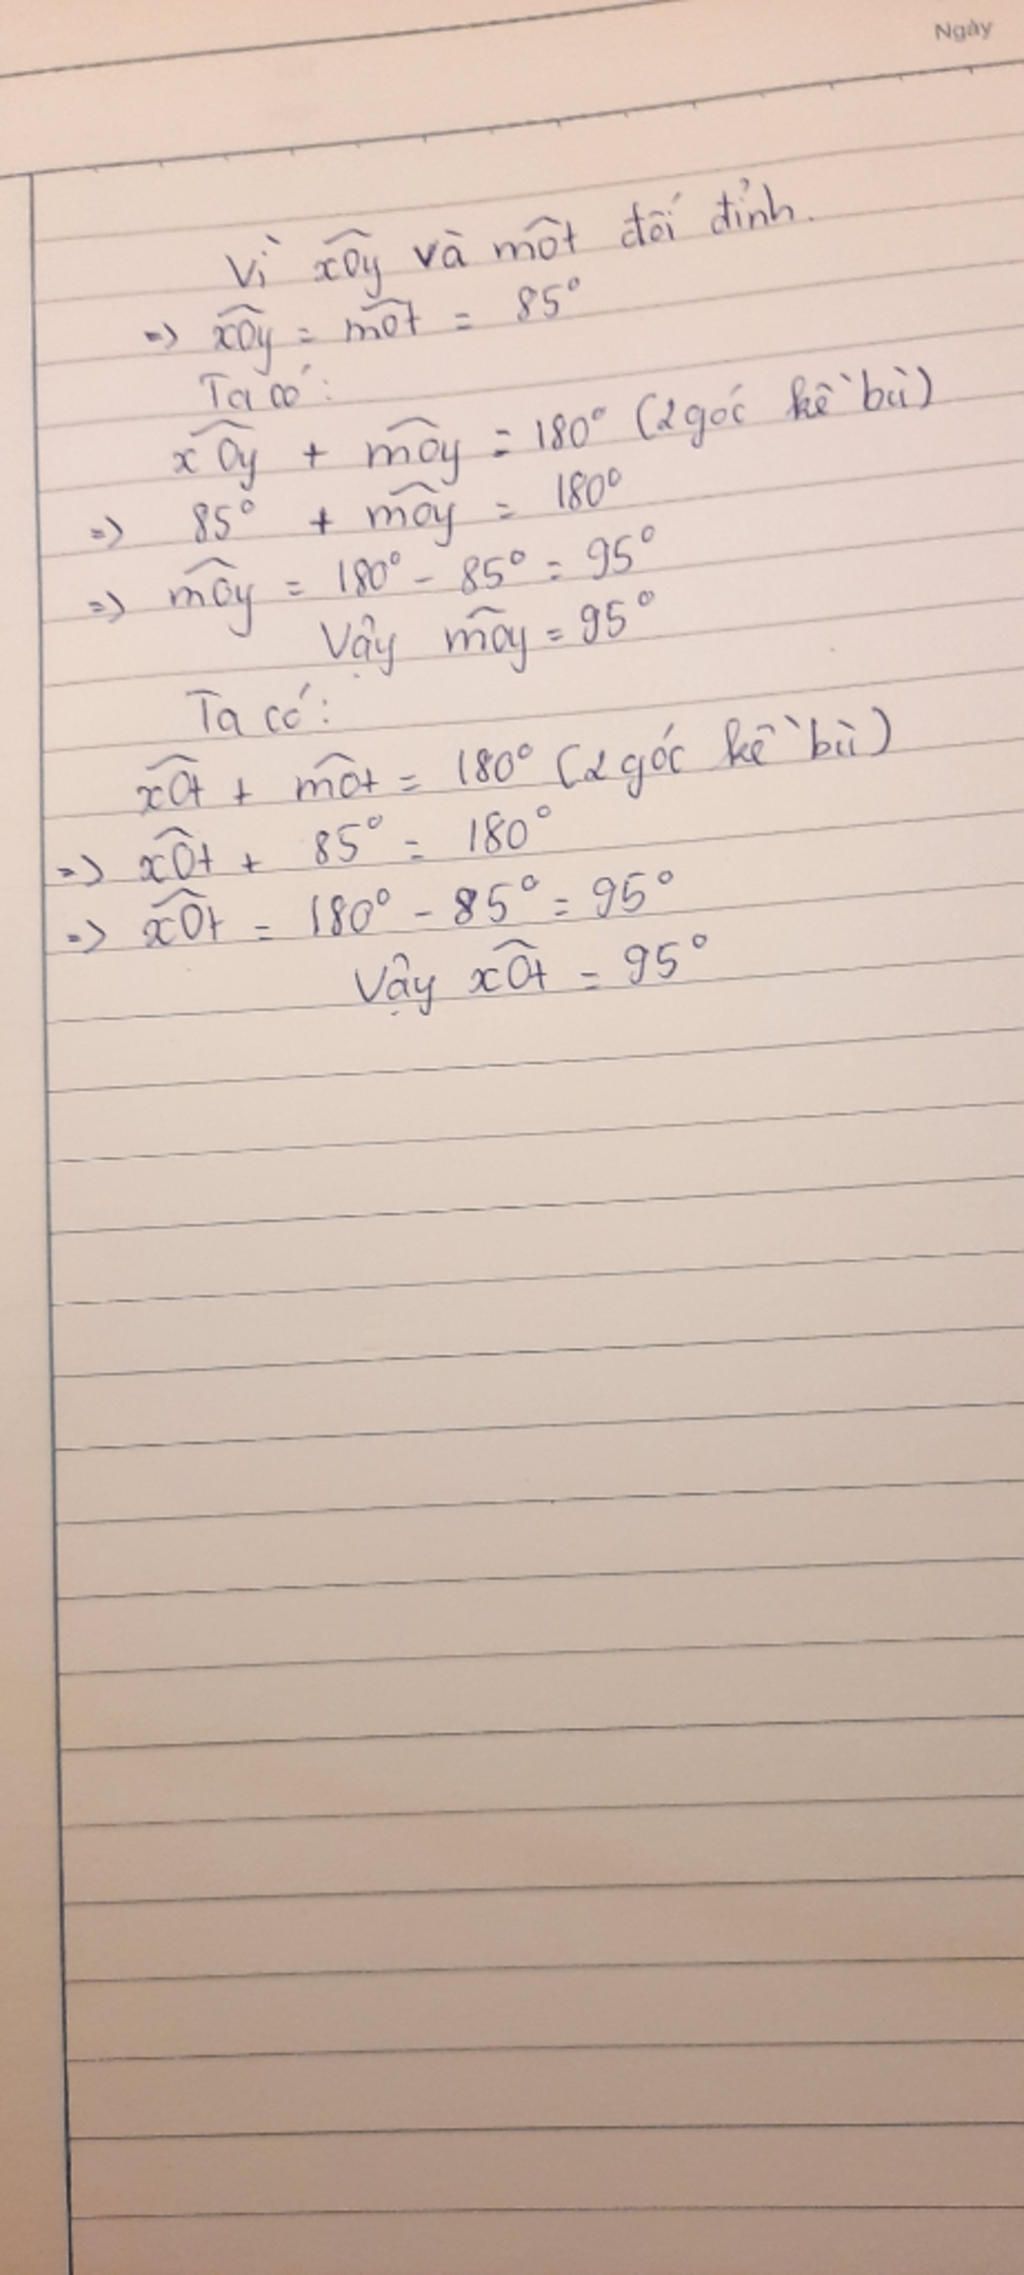 Ngày
Vì xOy và mOt đối đỉnh.
=> xOy = mOt = 85°
Ta có:
xOy + mOy = 180° (2 góc kề bù)
=> 85° + mOy = 180°
=> mOy = 180° - 85° = 95°
Vậy mOy = 95°
Ta có:
xOt + mOt = 180° (2 góc kề bù)
=> xOt + 85° = 180°
=> xOt = 180° - 85° = 95°
Vậy xOt = 95°